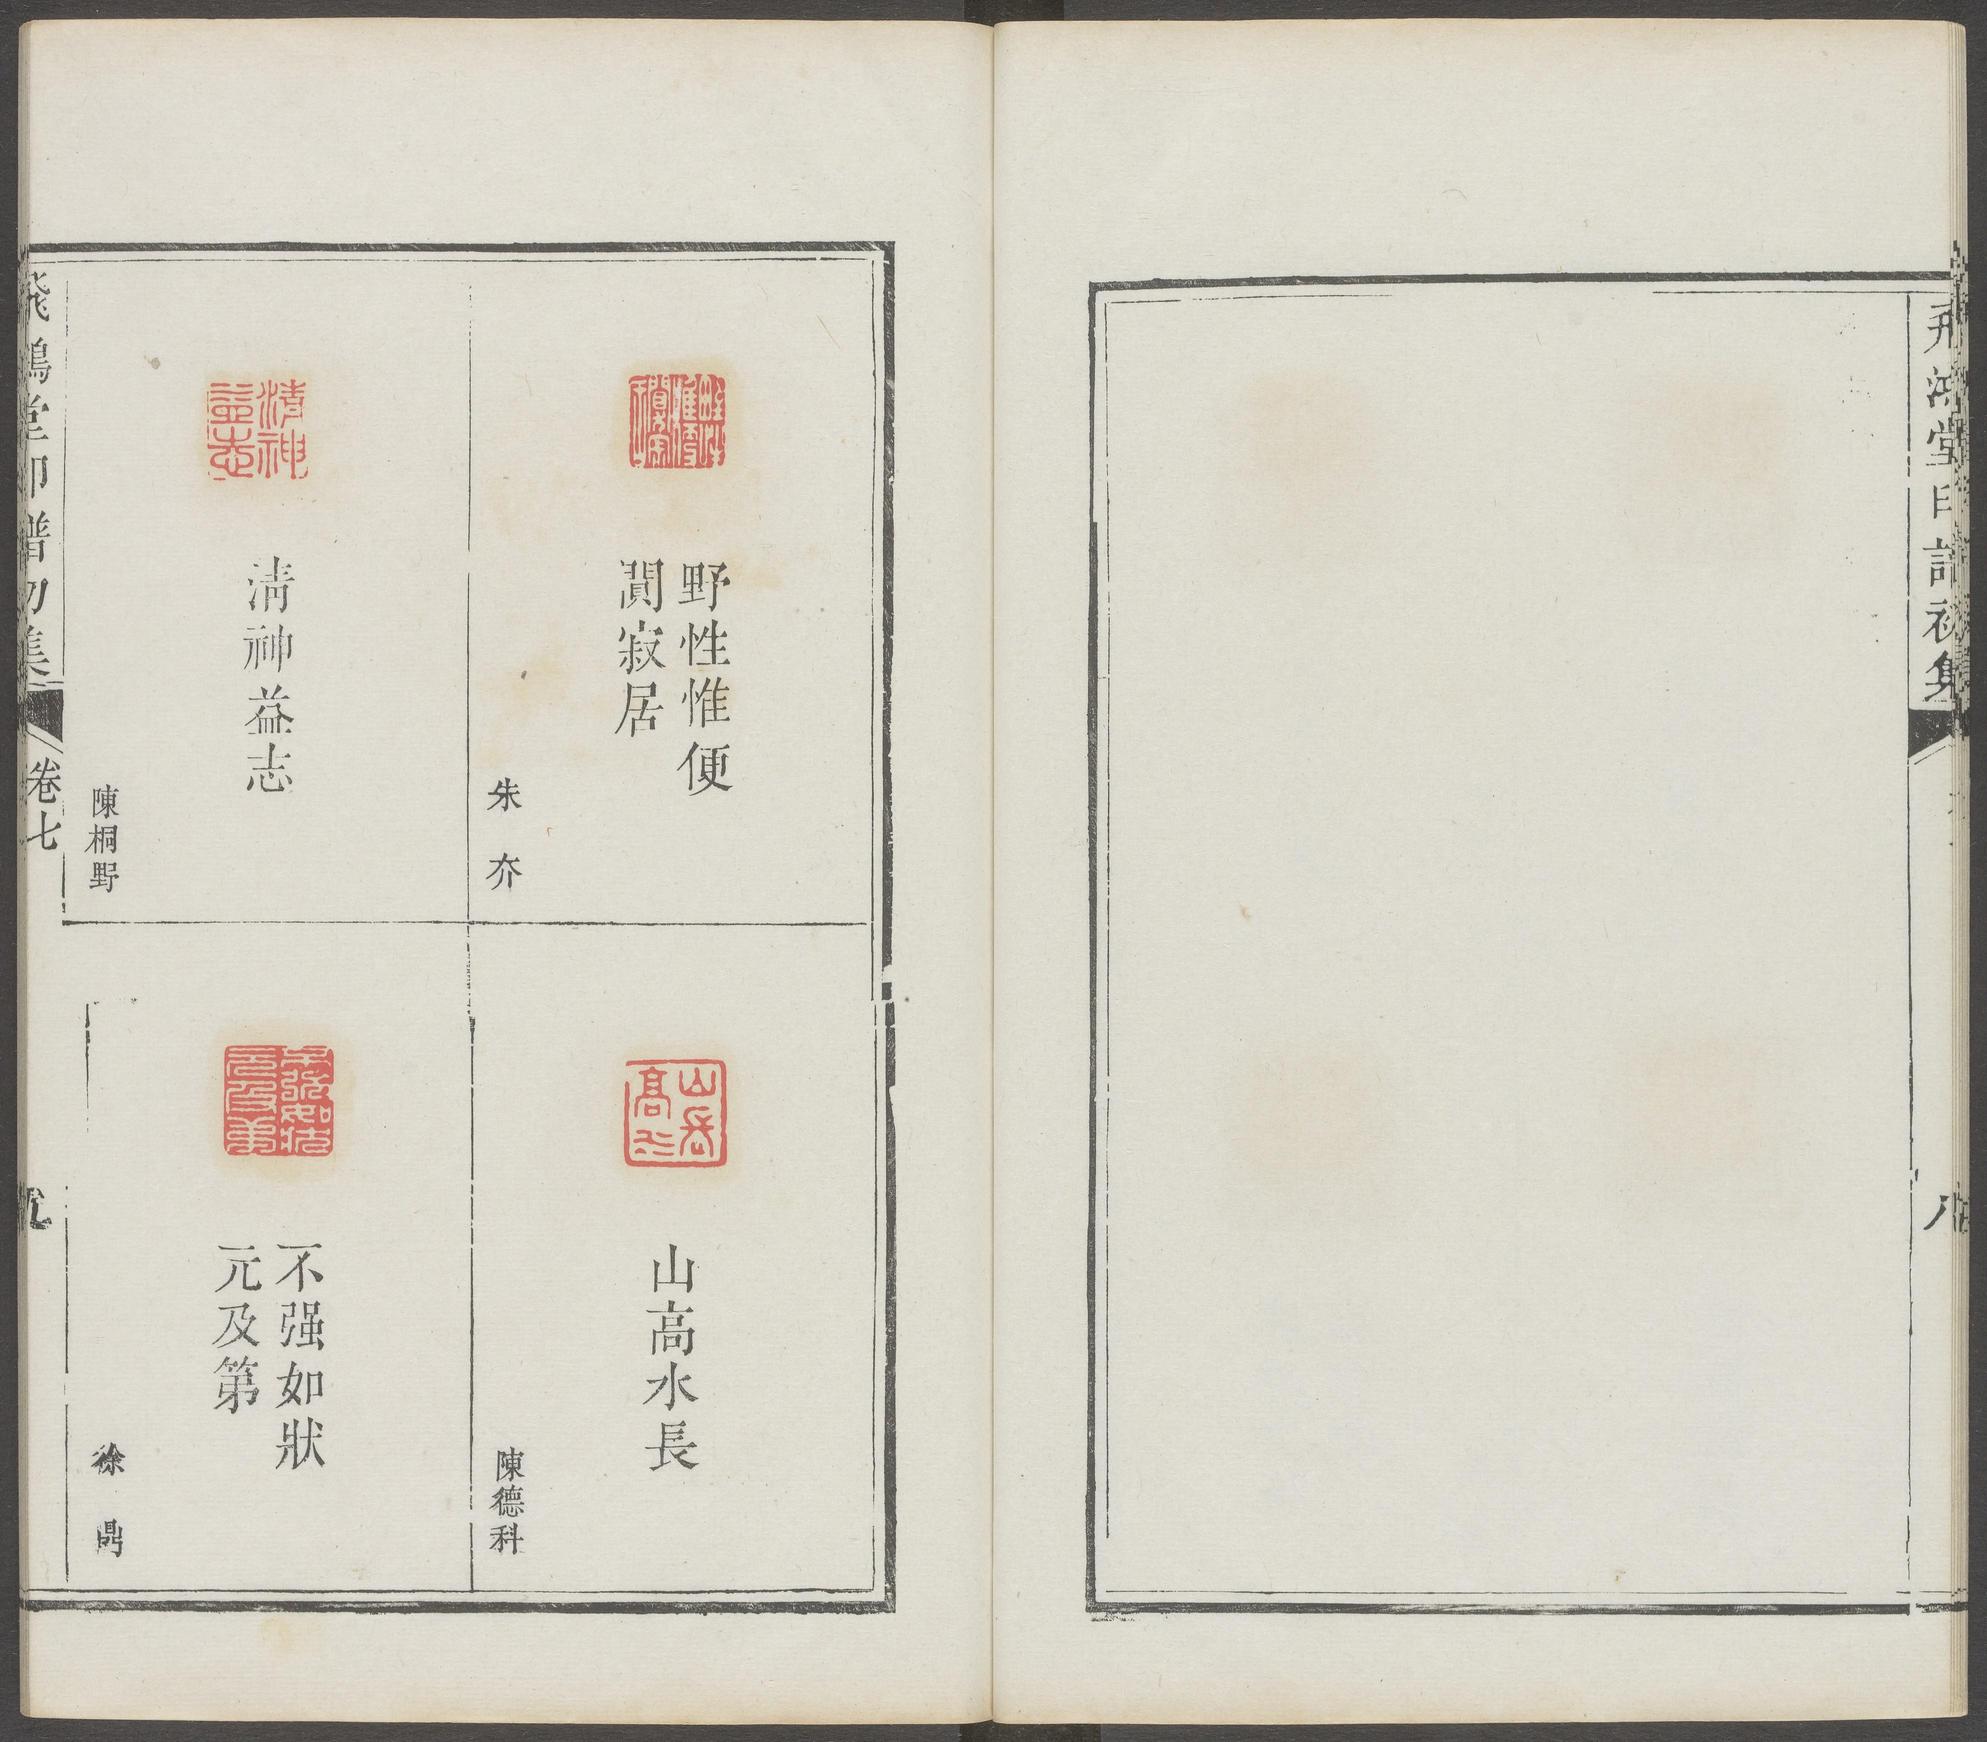 飛鴻堂印譜初集
八
野性惟便
閴寂居
朱 夰
山高水長
陳德科
清神益志
陳桐野
不强如狀
元及第
徐 鼎
飛鴻堂印譜初集
卷七
九